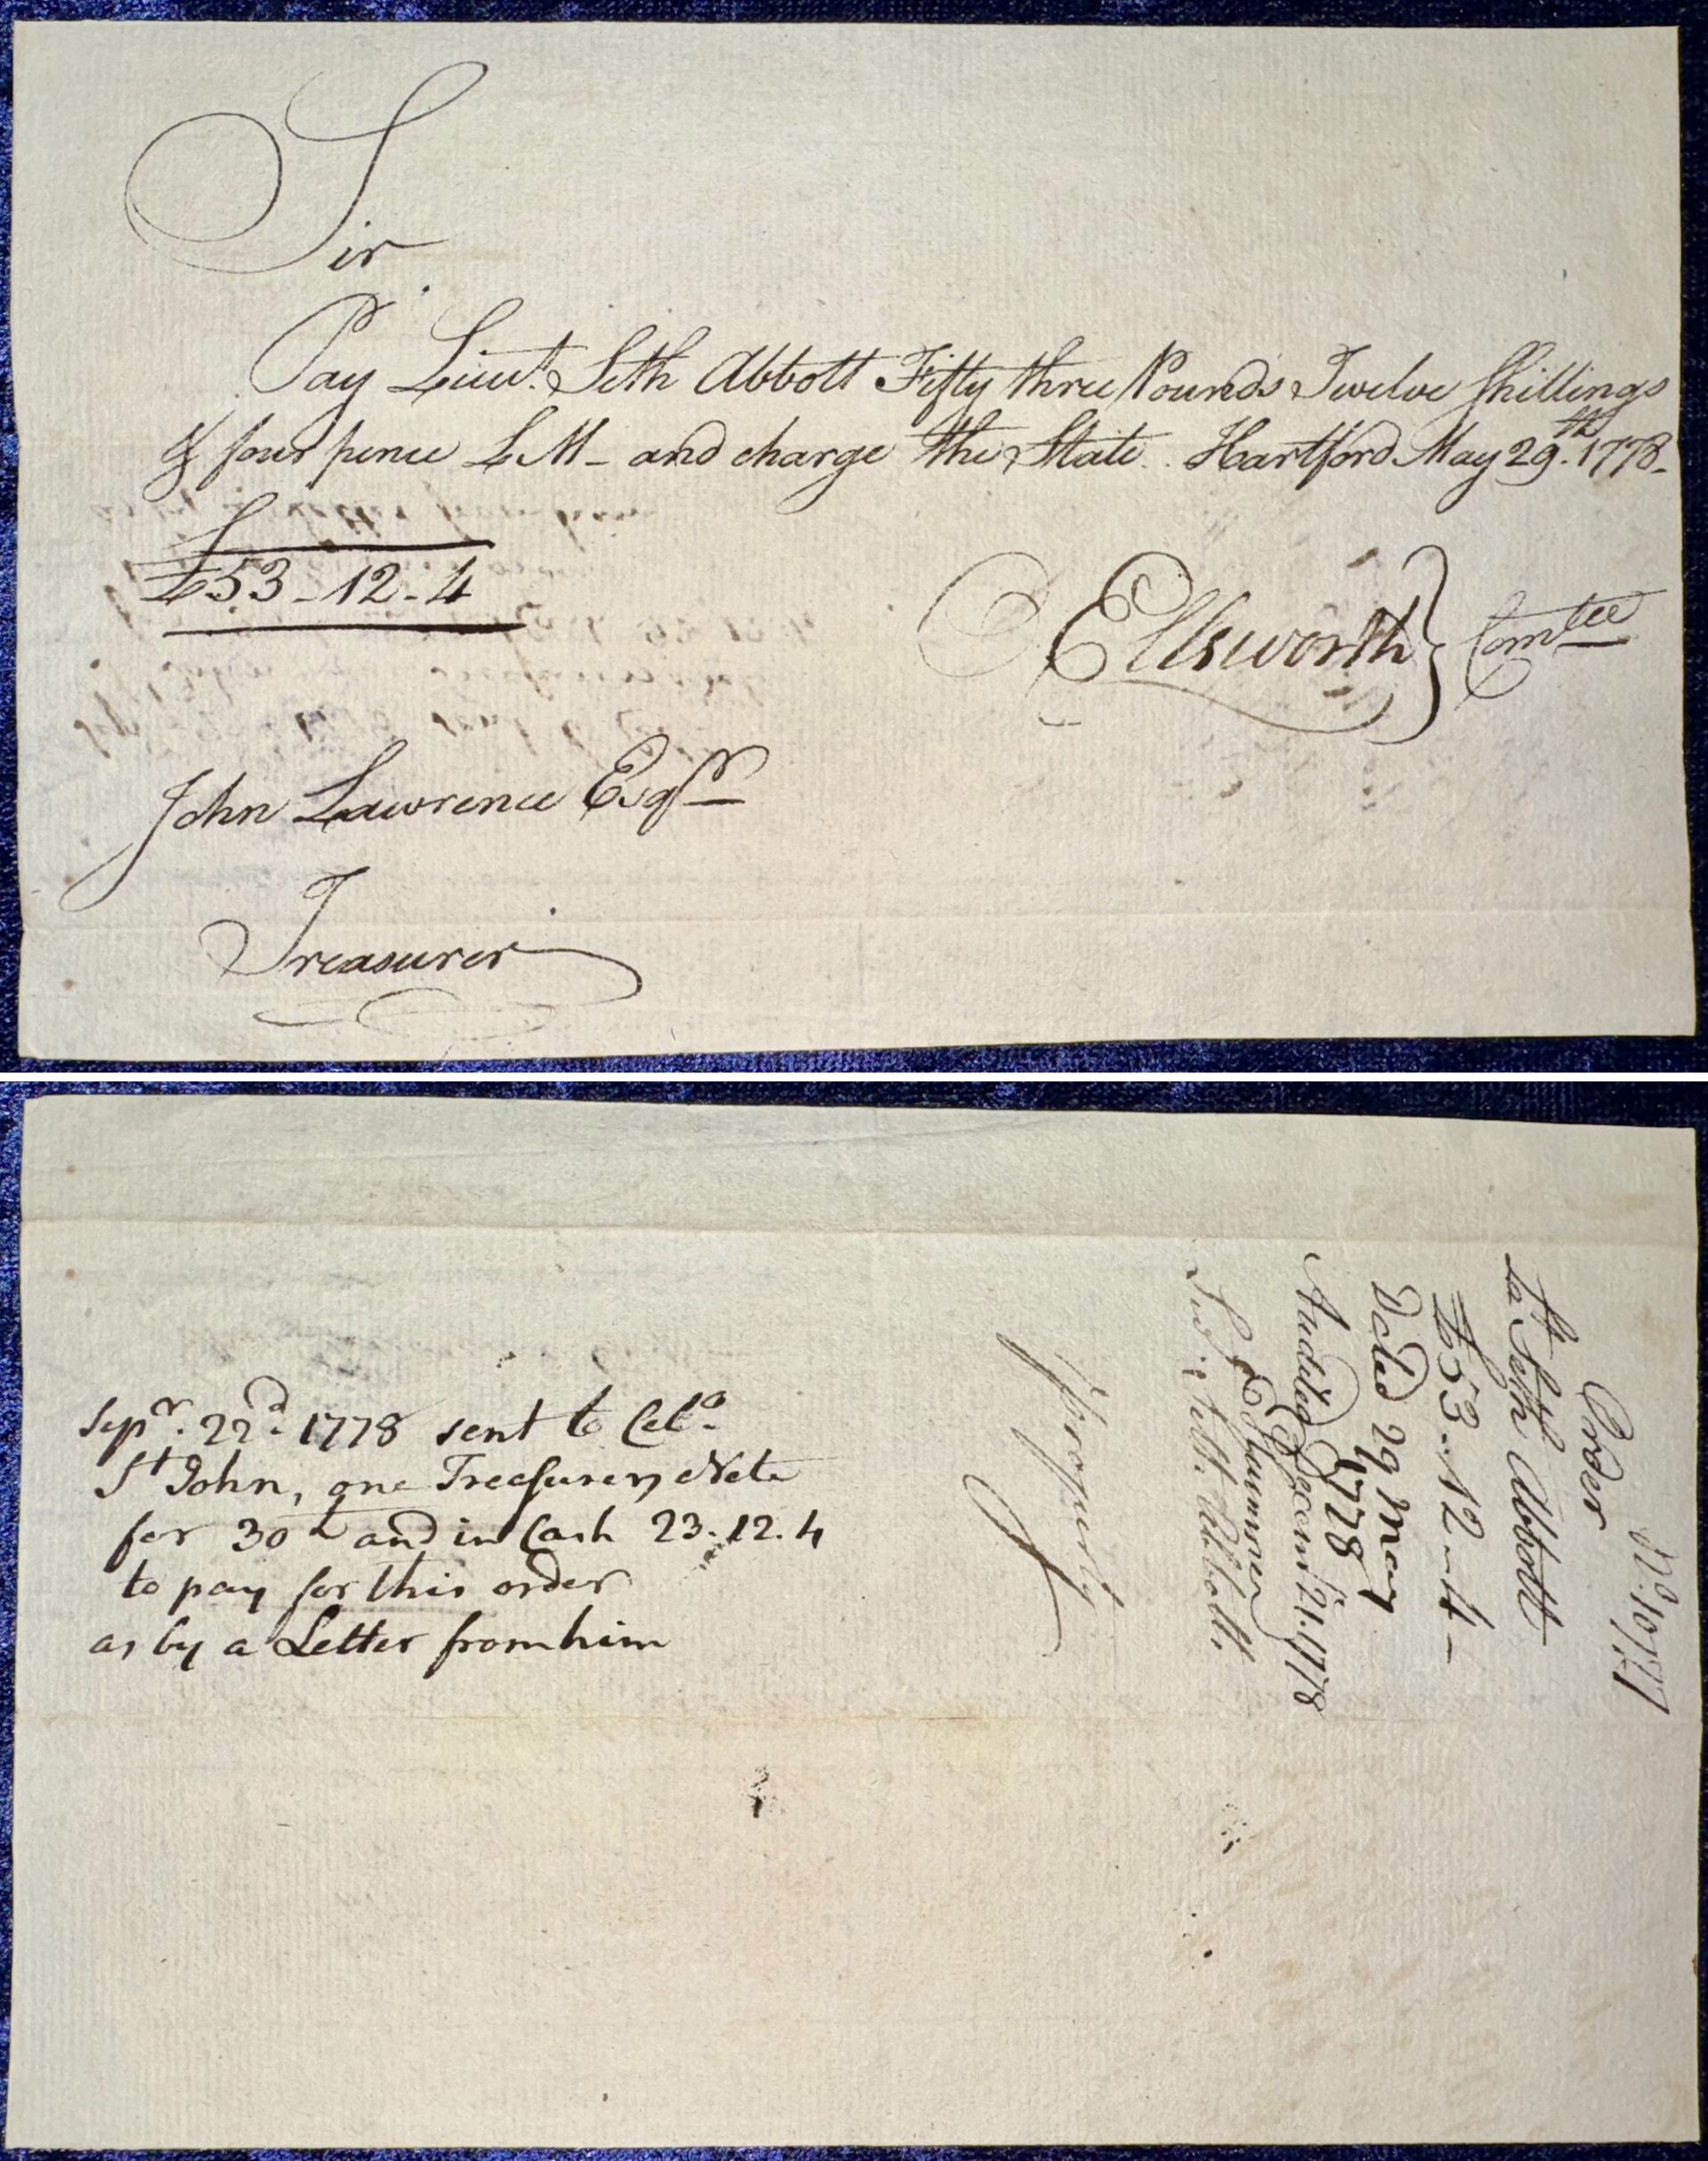 Sir
Pay Lieut. Seth Abbott Fifty three Pounds Twelve Shillings
& four pence LM - and charge the State. Hartford May 29th. 1778-
£53-12-4
Ellsworth } Comtee
John Lawrence Esqr
Treasurer
Sepr. 22d. 1778 sent to Colo
St John, one Treasurers Note
for 30£ and in Cash 23.12.4
to pay for this order
as by a Letter from him
No. 1077
Order
Lt Seth Abbott
£53-12-4-
Dated 29 May
1778
Audited Decemr 21. 1778
Examiner
Seth Abbott.